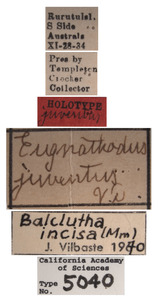 Rurutu Isl.
S Side
Australs
XI-28-34
Pres by
Templeton
Crocker
Collector
HOLOTYPE
juventus
Eugnathodus
juventus
V.D.
Balclutha
incisa (Mm)
J. Vilbaste 1970
California Academy
of Sciences
Type
No. 5040